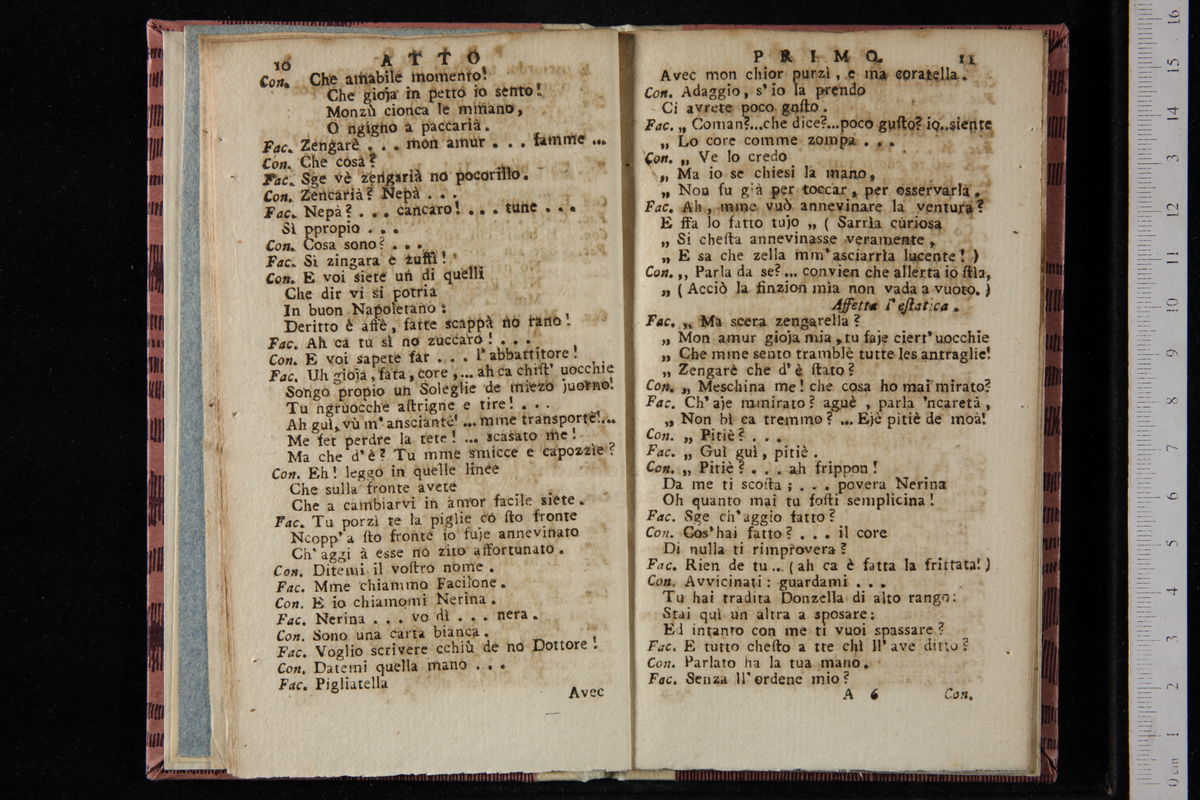 10 ATTO
Con. Che amabile momento!
Che gioja in petto io sento!
Monzù cionca le minano,
O ngigno a paccarià.
Fac. Zengarè . . . mon amur . . . famme ...
Con. Che cosa?
Fac. Sge vè zengarià no pocorillo.
Con. Zencarià? Nepà . . .
Fac. Nepà? . . . cancaro! . . . tune . . .
Sì ppropio . . .
Con. Cosa sono? . . .
Fac. Si zingara e zuffì!
Con. E voi siete un di quelli
Che dir vi si potria
In buon Napoletano:
Deritto è affè, fatte scappà no rano!
Fac. Ah ca tu sì no zuccaro! . . .
Con. E voi sapete far . . . l'abbattitore!
Fac. Uh gioja, fata, core, ... ah ca chiſt' uocchie
Songo propio un Soleglie de miezo juorno!
Tu ngruocche aſtrigne e tire! . . .
Ah guì, vù m'ansciantè! ... mme transportè!...
Me fet perdre la tete! ... scasato me!
Ma che d'è? Tu mme smicce e capozzìe?
Con. Eh! leggo in quelle linee
Che sulla fronte avete
Che a cambiarvi in amor facile siete.
Fac. Tu porzì te la piglie có ſto fronte
Ncopp'a ſto fronte io fuje annevinato
Ch'aggi à esse nò zito affortunato.
Con. Ditemi il voſtro nome.
Fac. Mme chiammo Facilone.
Con. E io chiamomi Nerina.
Fac. Nerina . . . vo dì . . . nera.
Con. Sono una carta bianca.
Fac. Voglio scrivere cchiù de no Dottore!
Con. Datemi quella mano . . .
Fac. Pigliatella
Avec
PRIMO. 11
Avec mon chior purzì, e ma coratella.
Con. Adaggio, s'io la prendo
Ci avrete poco guſto.
Fac. „ Coman?...che dice?...poco guſto? io..siente
„ Lo core comme zompa . . .
Con. „ Ve lo credo
„ Ma io se chiesi la mano,
„ Non fu già per toccar, per osservarla.
Fac. Ah, mme vuò annevinare la ventura?
E ffa lo fatto tujo „ ( Sarrìa curiosa
„ Si cheſta annevinasse veramente,
„ E sa che zella mm'asciarrìa lucente! )
Con. „ Parla da se? ... convien che allerta io ſtia,
„ ( Acciò la finzion mia non vada a vuoto. )
Affetta l'eſtatica.
Fac. „ Ma scera zengarella?
„ Mon amur gioja mia, tu faje ciert'uocchie
„ Che mme sento tramblè tutte les antraglie!
„ Zengarè che d'è ſtato?
Con. „ Meschina me! che cosa ho mai mirato?
Fac. Ch'aje mmirato? aguè, parla 'ncaretà,
„ Non bì ca tremmo? ... Ejè pitiè de moà!
Con. „ Pitiè? . . .
Fac. „ Guì guì, pitiè.
Con. „ Pitiè? . . . ah frippon!
Da me ti scoſta; . . . povera Nerina
Oh quanto mai tu foſti semplicina!
Fac. Sge ch'aggio fatto?
Con. Cos'hai fatto? . . . il core
Di nulla ti rimprovera?
Fac. Rien de tu ... (ah ca è fatta la frittata!)
Con. Avvicinati: guardami . . .
Tu hai tradita Donzella di alto rango:
Stai quì un altra a sposare:
Ed intanto con me ti vuoi spassare?
Fac. E tutto cheſto a tte chì ll'ave ditto?
Con. Parlato ha la tua mano.
Fac. Senza ll'ordene mio?
A 6 Con.
16
15
14
13
12
11
10
9
8
7
6
5
4
3
2
1
0 cm